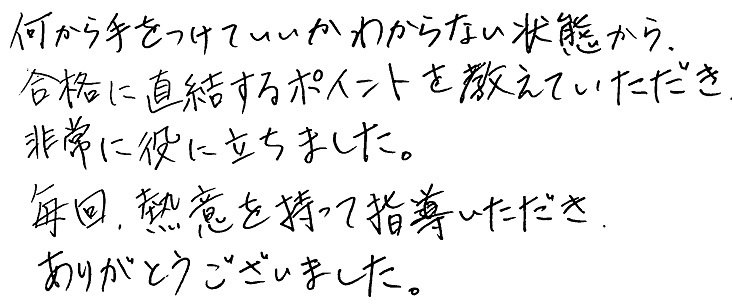 何から手をつけていいかわからない状態から、
合格に直結するポイントを教えていただき、
非常に役に立ちました。
毎回、熱意を持って指導いただき、
ありがとうございました。